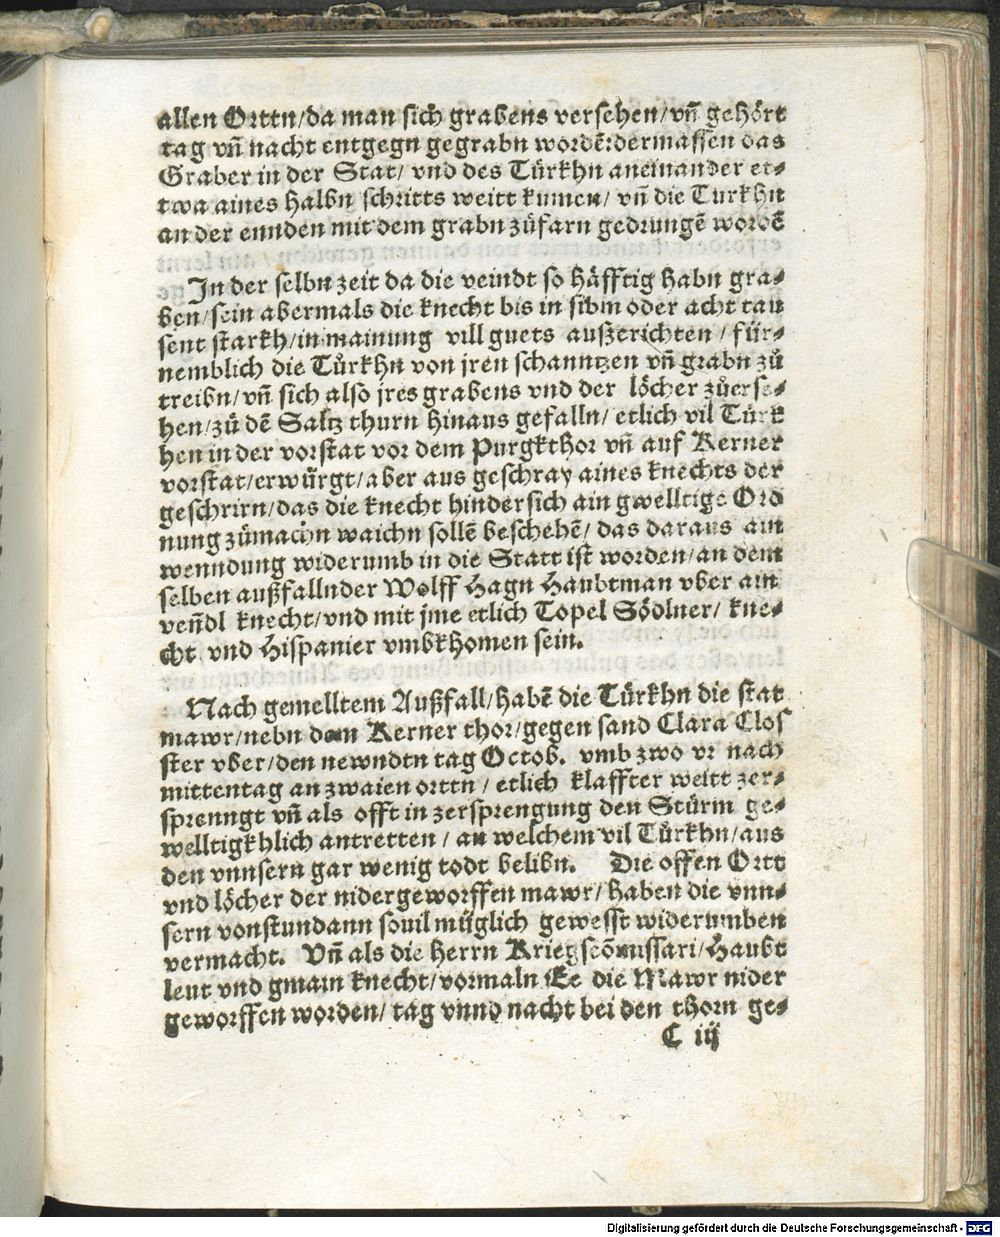 allen Orttn/da man sich grabens versehen/vn̄ gehört
tag vn̄ nacht entgegn gegrabn wordē:dermassen das
Graber in der Stat/ vnd des Türkhn aneinander et⸗
twa aines halbn schritts weitt kumen/ vn̄ die Turkhn
an der ennden mit dem grabn zůfarn gedrungē wordē
In der selbn zeit da die veindt so häfftig habn gra⸗
ben/sein abermals die knecht bis in sibm oder acht tau
sent starkh/in mainung vill guets außzerichten / für⸗
nemblich die Tůrkhn von jren schanntzen vn̄ grabn zů
treibn/vn̄ sich also jres grabens vnd der löcher zůerse⸗
hen/zů dē Saltz thurn hinaus gefalln/ etlich vil Türk
hen in der vorstat vor dem Purgkthor vn̄ auf Kerner
vorstat/erwürgt/aber aus geschray aines knechts der
geschrirn/das die knecht hindersich ain gwelltige Ord
nung zůmachn waichn sollē beschehē/ das daraus ain
wenndung widerumb in die Statt ist worden/an dem
selben außfallnder Wolff Hagn Haubtman vber ain
ven̄dl knecht/vnd mit jme etlich Topel Söolner/ kne⸗
cht vnd Hispanier vmbkhomen sein.
Nach gemelltem Außfall/habē die Türkhn die stat
mawr/nebn dem Kerner thor/gegen sand Clara Clos
ster vber/den newndtn tag Octob. vmb zwo vr nach
mittentag an zwaien orttn / etlich klaffter weitt zer⸗
sprenngt vn̄ als offt in zersprengung den Stürm ge⸗
welltigkhlich antretten / an welchem vil Türkhn/aus
den vnnsern gar wenig todt belibn. Die offen Ortt
vnd löcher der nidergeworffen mawr/haben die vnn⸗
sern vonstundann souil müglich gewesst widerumben
vermacht. Vn̄ als die Herrn Kriegscōmissari/Haubt
leut vnd gmain knecht/vormaln Ee die Mawr nider
geworffen worden/ tag vnnd nacht bei den thorn ge⸗
C iij
Digitalisierung gefördert durch die Deutsche Forschungsgemeinschaft - DFG